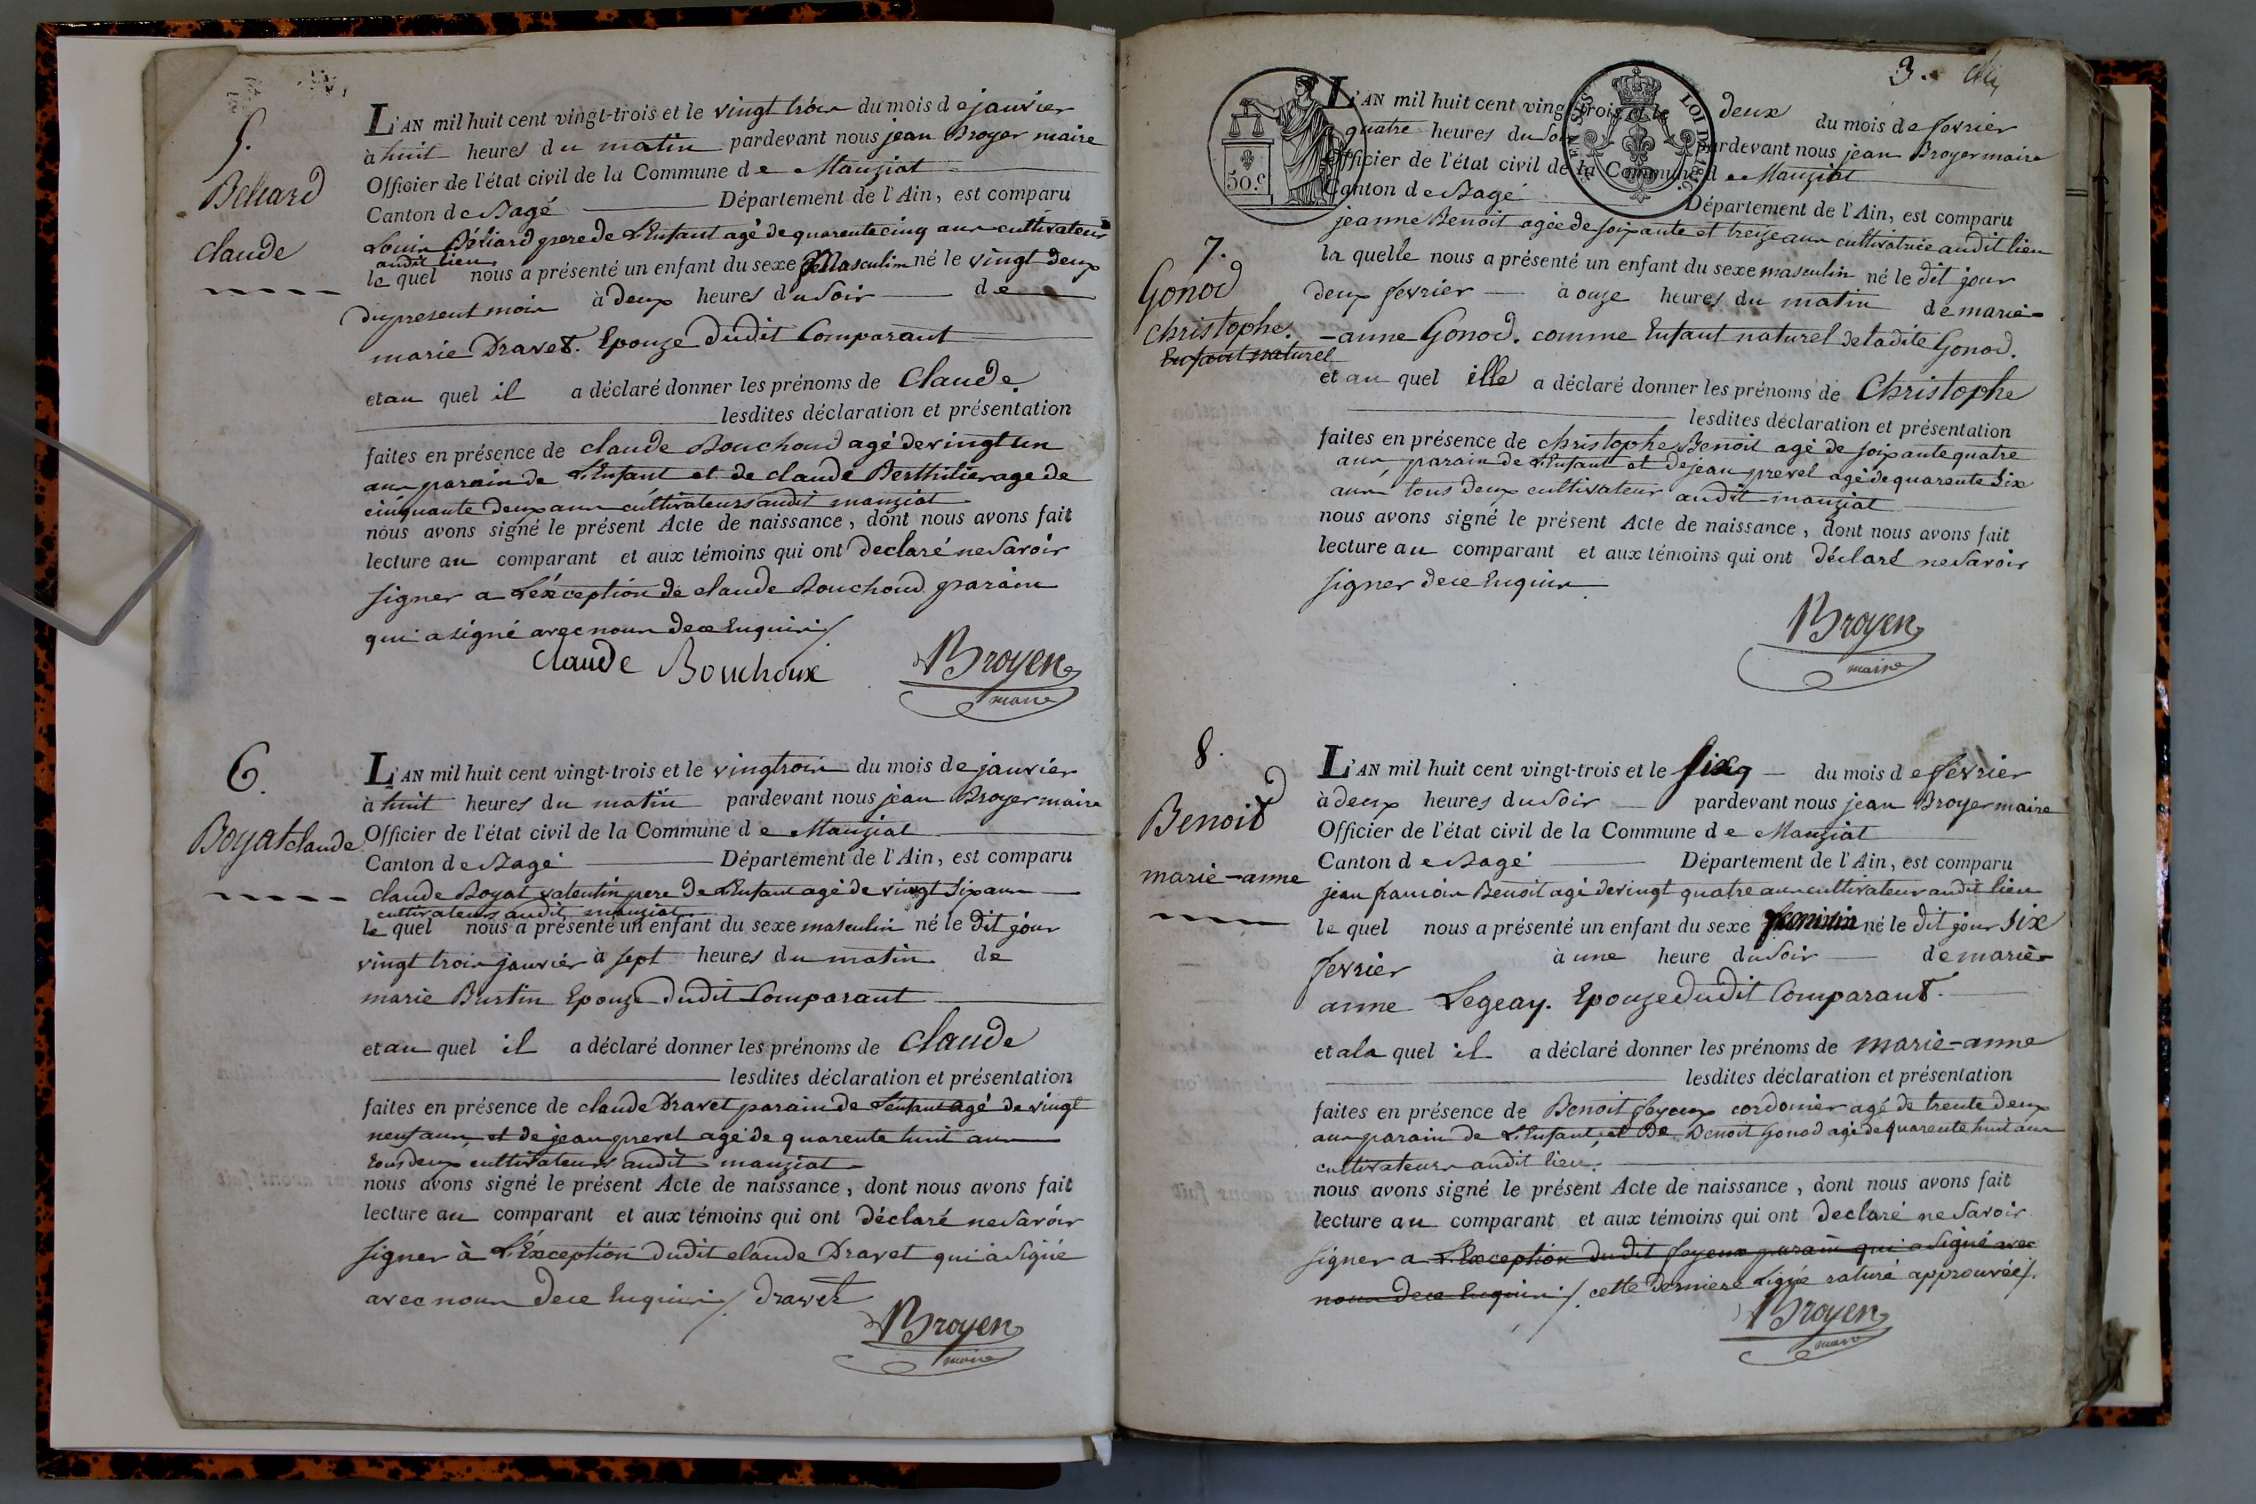 5.
Belliard
claude
L'AN mil huit cent vingt-trois et le vingt trois du mois de janvier
à huit heures du matin pardevant nous jean Broyer maire
Officier de l'état civil de la Commune de Manziat
Canton de Bagé Département de l'Ain, est comparu
Louis Béliard pere de L'Enfant agé de quarente cinq ans cultivateur
audit lieu
le quel nous a présenté un enfant du sexe Masculin né le vingt deux
du present mois à deux heures du Soir de
marie Dravet. Epouze dudit Comparant
et au quel il a déclaré donner les prénoms de Claude.
lesdites déclaration et présentation
faites en présence de claude Bouchoud agé de vingt un
ans parain de L'Enfant et de claude Berthilier age de
cinquante deux ans cultivateurs audit manziat
nous avons signé le présent Acte de naissance, dont nous avons fait
lecture au comparant et aux témoins qui ont declaré ne Savoir
signer a L'éxception de claude Bouchoud parain
qui a signé avec nous de ce Enquiri
claude Bouchoux Broyer
maire
6.
Boyat claude
L'AN mil huit cent vingt-trois et le vingtrois du mois de janvier
à huit heures du matin pardevant nous jean Broyer maire
Officier de l'état civil de la Commune de Manziat
Canton de Bagé Département de l'Ain, est comparu
claude Boyat valentin pere de L'Enfant agé de vingt Six ans
cultivateurs audit manziat
le quel nous a présenté un enfant du sexe masculin né le dit jour
vingt trois janvier à sept heures du matin de
marie Burtin Epouze dudit Comparant
et au quel il a déclaré donner les prénoms de Claude
lesdites déclaration et présentation
faites en présence de claude Dravet parain de L'enfant agé de vingt
neuf ans et de jean prevel agé de quarente huit ans
tous deux cultivateurs audit manziat
nous avons signé le présent Acte de naissance, dont nous avons fait
lecture au comparant et aux témoins qui ont déclaré ne Savoir
signer à L'Exception dudit claude Dravet qui à Signé
avec nous de ce Enquiri dravet
Broyer
maire
3.
50 c
EN SUS LOI DE 1816.
7.
Gonod
christophe.
Enfant naturel
L'AN mil huit cent vingt-trois et le deux du mois de fevrier
quatre heures du Soir pardevant nous jean Broyer maire
Officier de l'état civil de la Commune de Manziat
Canton de Bagé Département de l'Ain, est comparu
jeanne Benoit agée de soixante et treize ans cultivatrice audit lieu
la quelle nous a présenté un enfant du sexe masculin né le dit jour
deux fevrier à onze heures du matin de marie-
-anne Gonod. comme Enfant naturel de ladite Gonod.
et au quel ille a déclaré donner les prénoms de Christophe
lesdites déclaration et présentation
faites en présence de christophe Benoit agé de soixante quatre
ans parain de L'Enfant et de jean prevel agé de quarente Six
ans tous deux cultivateur audit manziat
nous avons signé le présent Acte de naissance, dont nous avons fait
lecture au comparant et aux témoins qui ont déclaré ne Savoir
signer de ce Enquis
Broyer
maire
8.
Benoit
marie-anne
L'AN mil huit cent vingt-trois et le six du mois de fevrier
à deux heures du Soir pardevant nous jean Broyer maire
Officier de l'état civil de la Commune de Manziat
Canton de Bagé Département de l'Ain, est comparu
jean francois Benoit agé de vingt quatre ans cultivateur audit lieu
le quel nous a présenté un enfant du sexe feminin né le dit jour Six
fevrier à une heure du Soir de marie-
anne Legeay. Epouze dudit Comparant.
et a la quel il a déclaré donner les prénoms de marie-anne
lesdites déclaration et présentation
faites en présence de Benoit Joyoux cordonier agé de trente deux
ans parain de L'Enfant, et De Benoit Gonod agé de quarente huit ans
cultivateurs audit lieu.
nous avons signé le présent Acte de naissance, dont nous avons fait
lecture au comparant et aux témoins qui ont declaré ne Savoir
signer a L'Exception dudit Joyoux parain qui a Signé avec
nous de ce Enquiri cette derniere Ligne raturé approuvée
Broyer
maire